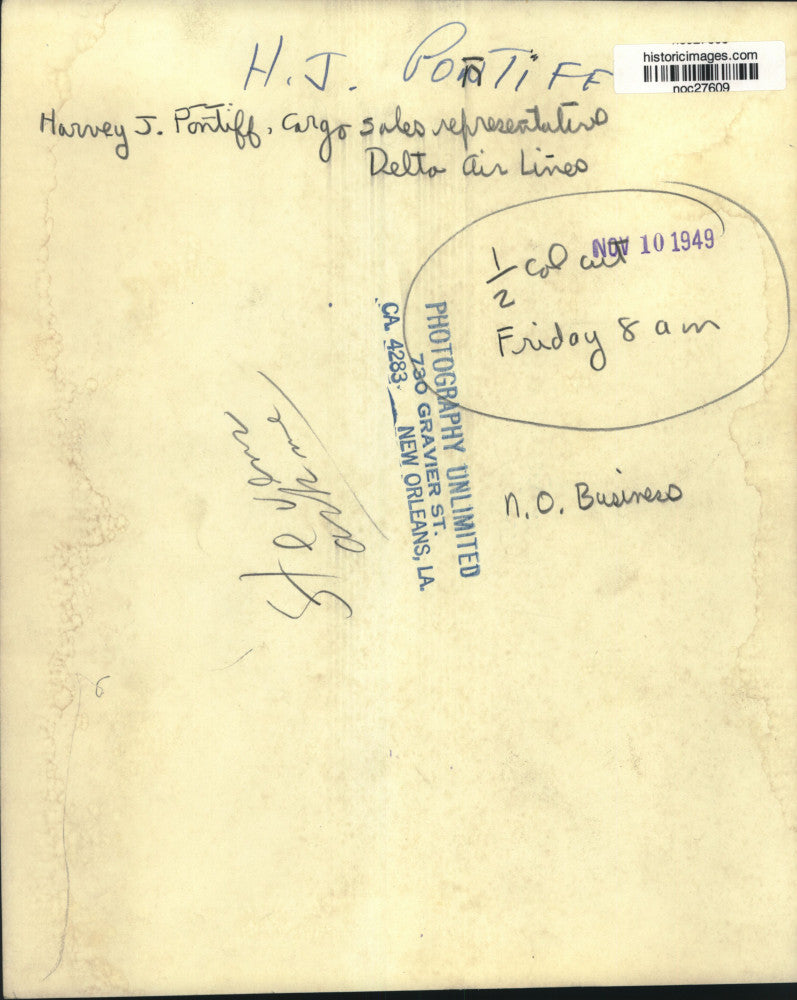 H. J. PONTIFF
historicimages.com
noc27609
Harvey J. Pontiff, Cargo sales representative
Delta Air Lines
NOV 10 1949
1/2 col cut
Friday 8 am
PHOTOGRAPHY UNLIMITED
730 GRAVIER ST.
CA. 4283 — NEW ORLEANS, LA.
N.O. Business
6